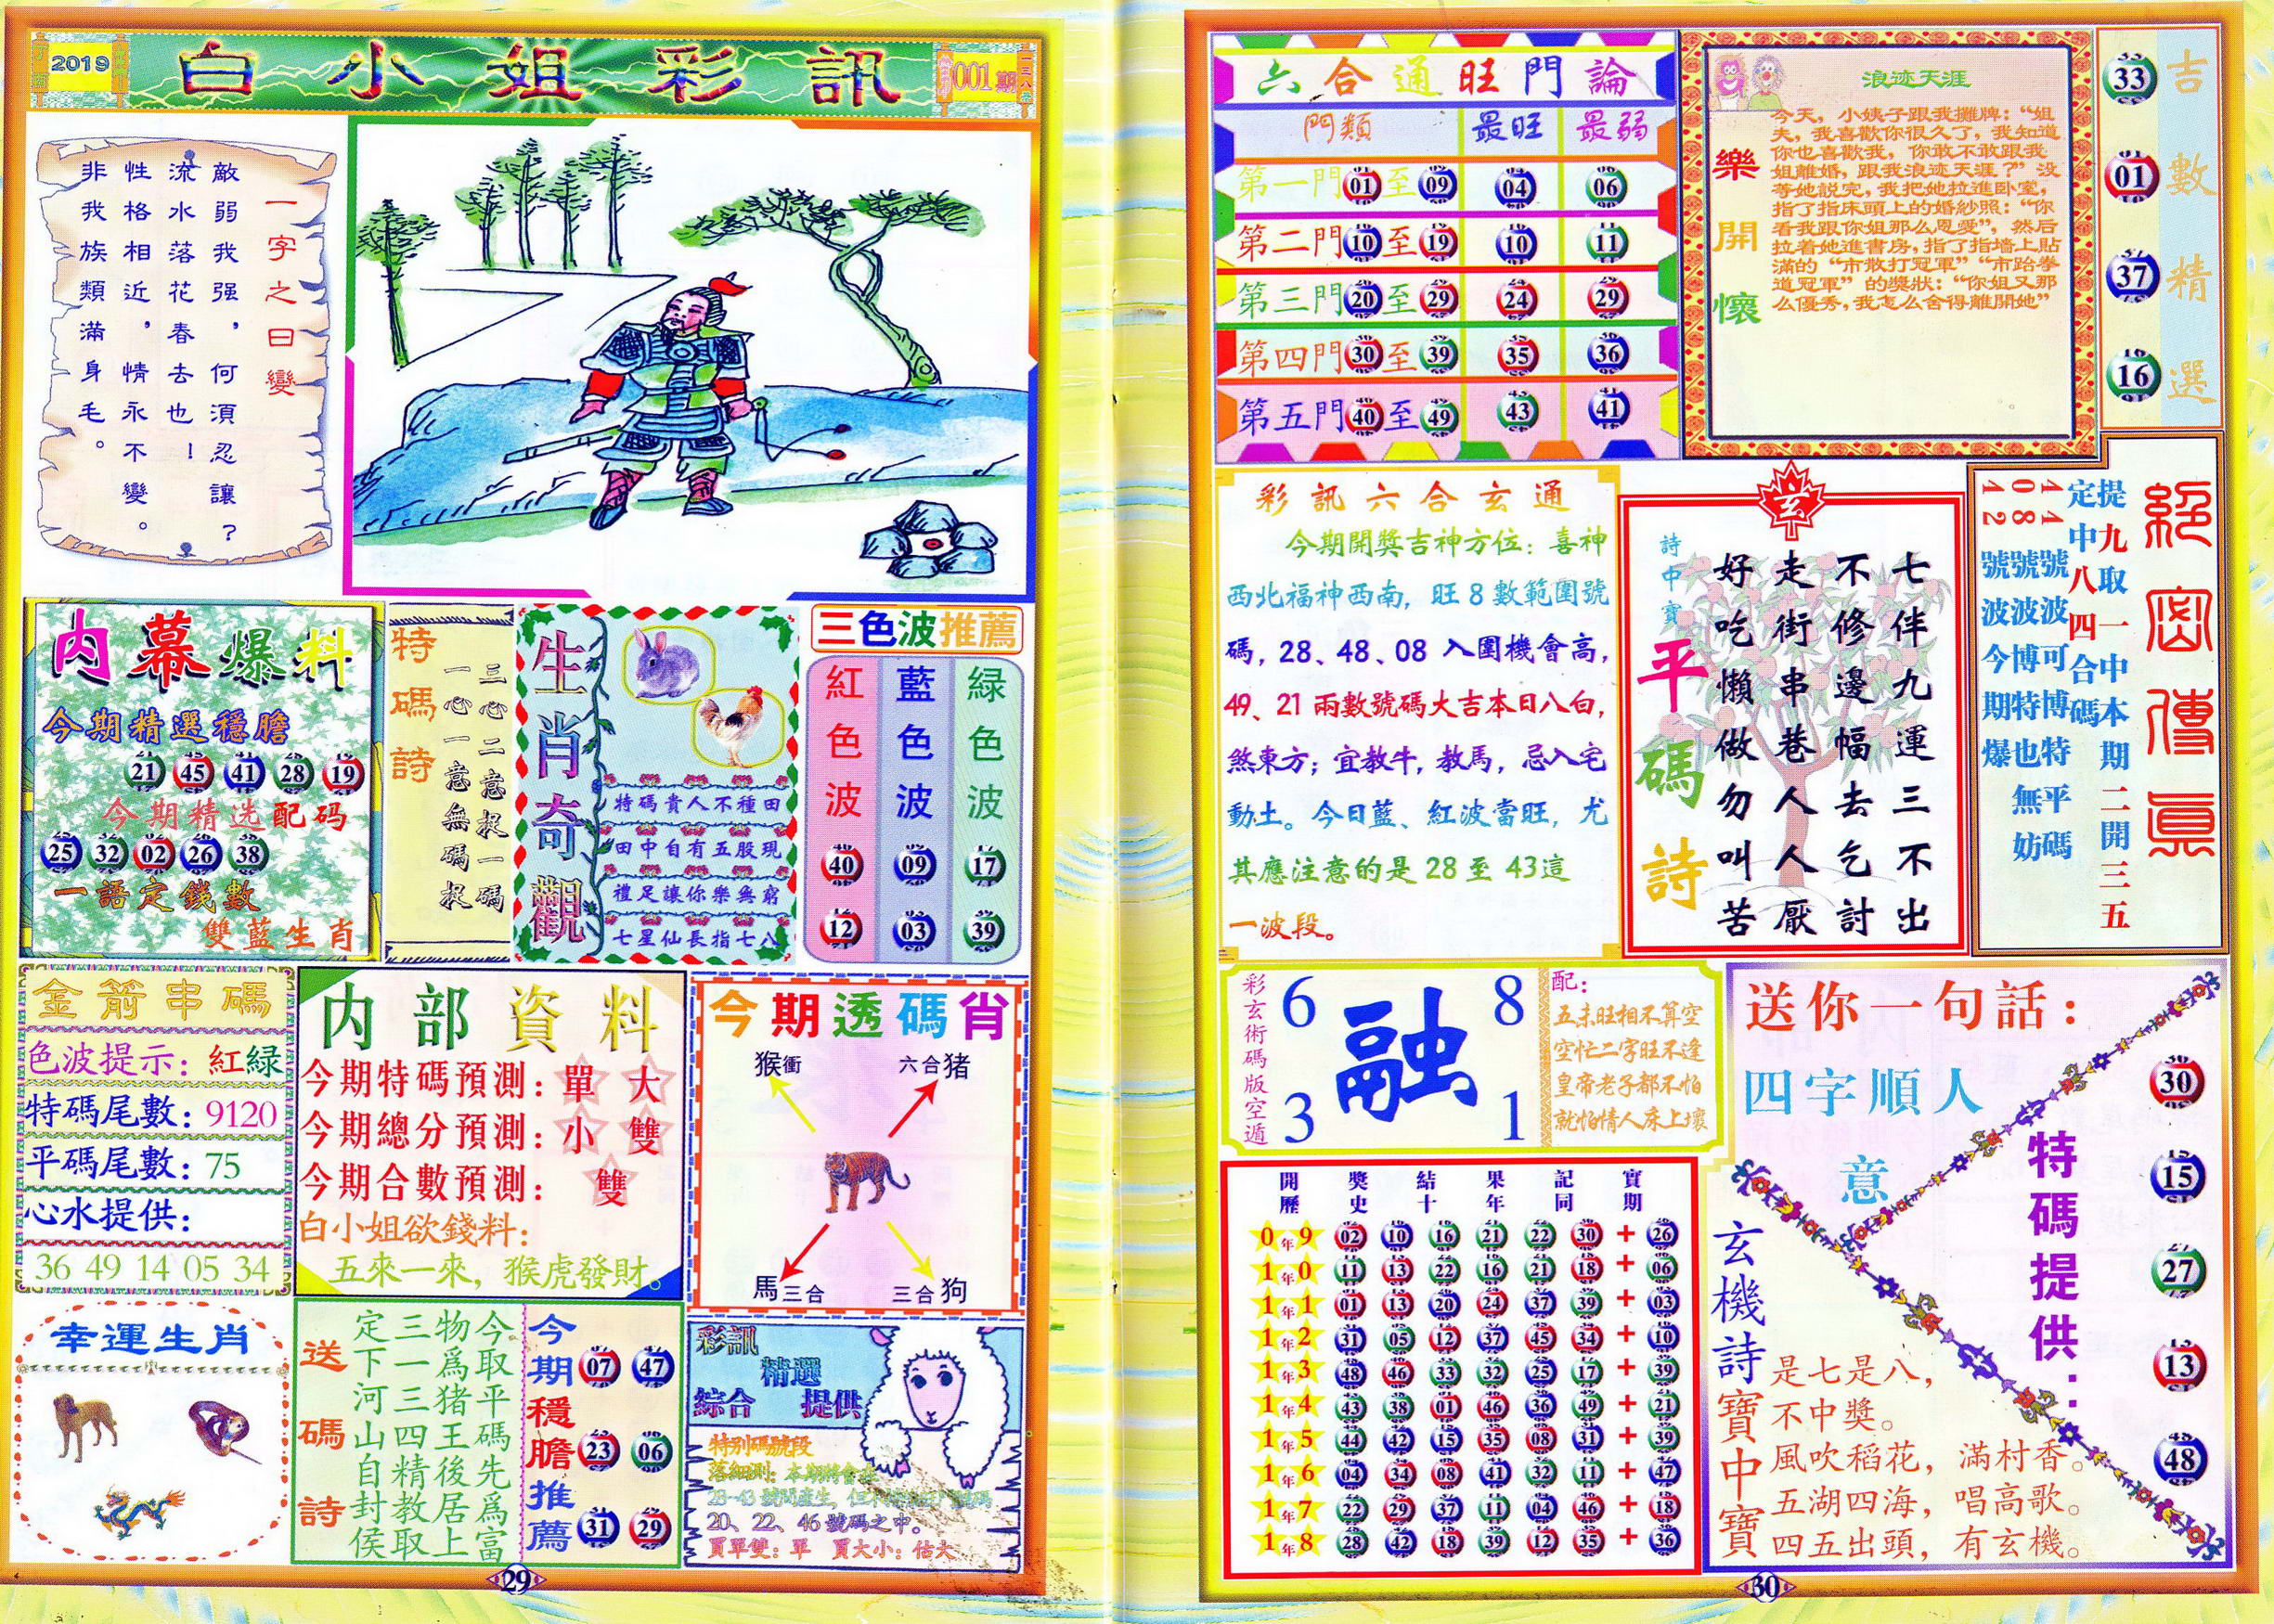 2019
白小姐彩訊
001期
一字之曰變
敵弱我强，何須忍讓？
流水落花春去也！
性格相近，情永不變。
非我族類滿身毛。
内幕爆料
今期精選穩膽
21 45 41 28 19
今期精选配码
25 32 02 26 38
一語定錢數
雙藍生肖
特碼詩
三心二意捉一碼
一心一意無碼捉
生肖奇觀
特碼貴人不種田
田中自有五股現
禮足讓你樂無窮
七星仙長指七八
三色波推薦
紅色波 藍色波 緑色波
40 09 17
12 03 39
金箭串碼
色波提示：紅緑
特碼尾數：9120
平碼尾數：75
心水提供：
36 49 14 05 34
内部資料
今期特碼預測：單 大
今期總分預測：小 雙
今期合數預測： 雙
白小姐欲錢料：
五來一來，猴虎發財。
今期透碼肖
猴衝 六合猪
馬三合 三合狗
幸運生肖
送碼詩
今取平碼先爲富
物爲猪王後居上
三一三四精教取
定下河山自封侯
今期穩膽推薦
07 47
23 06
31 29
彩訊
精選
綜合 提供
特别碼號段
落細測：本期將會在
28-43號間產生，但
20、22、46號碼之中。
買單雙：單 買大小：估大
29
六合通旺門論
門類 最旺 最弱
第一門 01 至 09 04 06
第二門 10 至 19 10 11
第三門 20 至 29 24 29
第四門 30 至 39 35 36
第五門 40 至 49 43 41
樂開懷
浪迹天涯
今天，小姨子跟我攤牌：“姐
夫，我喜歡你很久了，我知道
你也喜歡我，你敢不敢跟我
姐離婚，跟我浪迹天涯？”没
等她説完，我把她拉進卧室，
指了指床頭上的婚紗照：“你
看我跟你姐那么恩愛”，然后
拉着她進書房，指了指墙上貼
滿的“市散打冠軍”“市跆拳
道冠軍”的獎狀：“你姐又那
么優秀，我怎么舍得離開她”
吉數精選
33
01
37
16
彩訊六合玄通
今期開獎吉神方位：喜神
西北福神西南，旺8數範圍號
碼，28、48、08入圍機會高，
49、21兩數號碼大吉本日八白，
煞東方；宜教牛，教馬，忌入宅
動土。今日藍、紅波當旺，尤
其應注意的是28至43這
一波段。
玄
詩中寶
平碼詩
七伴九運三不出
不修邊幅去乞討
走街串巷人人厭
好吃懶做勿叫苦
絕密傳眞
提九取一中本期二開三五
定中八四合碼
44號波可博特平碼
08號波博特也無妨
42號波今期爆
彩玄術碼版空遁
6 8
融
3 1
配：
五未旺相不算空
空忙二字旺不逢
皇帝老子都不怕
就怕情人床上壞
送你一句話：
四字順人
意
特碼提供：
30
15
27
13
48
玄機詩
寶中寶
是七是八，
不中獎。
風吹稻花，滿村香。
五湖四海，唱高歌。
四五出頭，有玄機。
開獎結果記寶
歷史十年同期
09年 02 10 16 21 22 30 + 26
10年 11 13 22 16 21 18 + 06
11年 01 13 20 24 37 39 + 03
12年 31 05 12 37 45 34 + 10
13年 48 46 33 32 25 17 + 39
14年 43 38 01 46 36 49 + 21
15年 44 42 15 35 08 31 + 39
16年 04 34 08 41 32 11 + 47
17年 22 29 37 11 04 46 + 18
18年 28 42 18 39 12 35 + 36
30